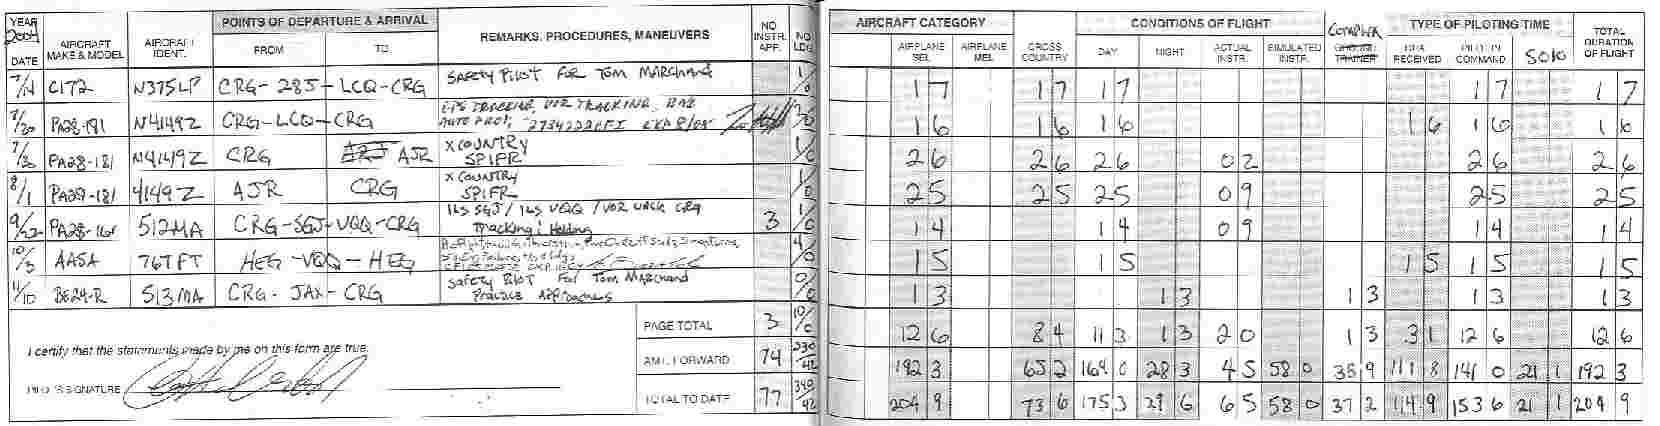 YEAR 2004 POINTS OF DEPARTURE & ARRIVAL NO INSTR. APP. NO LDG AIRCRAFT CATEGORY CONDITIONS OF FLIGHT COMPLEX TYPE OF PILOTING TIME TOTAL DURATION OF FLIGHT
DATE AIRCRAFT MAKE & MODEL AIRCRAFT IDENT. FROM TO REMARKS, PROCEDURES, MANEUVERS AIRPLANE SEL AIRPLANE MEL CROSS COUNTRY DAY NIGHT ACTUAL INSTR. SIMULATED INSTR. RECEIVED PILOT IN COMMAND SOLO
C172 N375LP CRG-285-LCQ-CRG SAFETY PILOT FOR TOM MARCHAND 1/0 1 7 1 7 1 7 1 7 1 7
7/20 PA28-181 N4149Z CRG-LCQ-CRG VOR TRACKING 1 6 1 6 1 6 1 6 1 6 1 6
PA28-181 N4149Z CRG AJR X COUNTRY 2 6 2 6 2 6 0 2 2 6 2 6
SPIFR
8/1 PA28-181 4149Z AJR CRG X COUNTRY 1/0 2 5 2 5 2 5 0 9 2 5 2 5
SPIFR
PA28-161 512MA CRG-SGJ-VQQ-CRG ILS SGJ / ILS VQQ / VOR CRG 3 1/0 1 4 1 4 0 9 1 4 1 4
Tracking & Holding
10/3 AA5A 767FT HEG-VQQ-HEG 4/0 1 5 1 5 1 5 1 5 1 5
513MA CRG-JAX-CRG SAFETY PILOT FOR TOM MARCHAND 0/0 1 3 1 3 1 3 1 3 1 3
PRACTICE APPROACHES
PAGE TOTAL 3 10/0 12 6 8 4 11 3 1 3 2 0 1 3 3 1 12 6 12 6
I certify that the statements made by me on this form are true.
AMT. FORWARD 74 192 3 65 2 164 0 28 3 4 5 58 0 35 9 111 8 141 0 21 1 192 3
PILOT'S SIGNATURE
TOTAL TO DATE 77 204 9 73 6 175 3 29 6 6 5 58 0 37 2 114 9 153 6 21 1 204 9